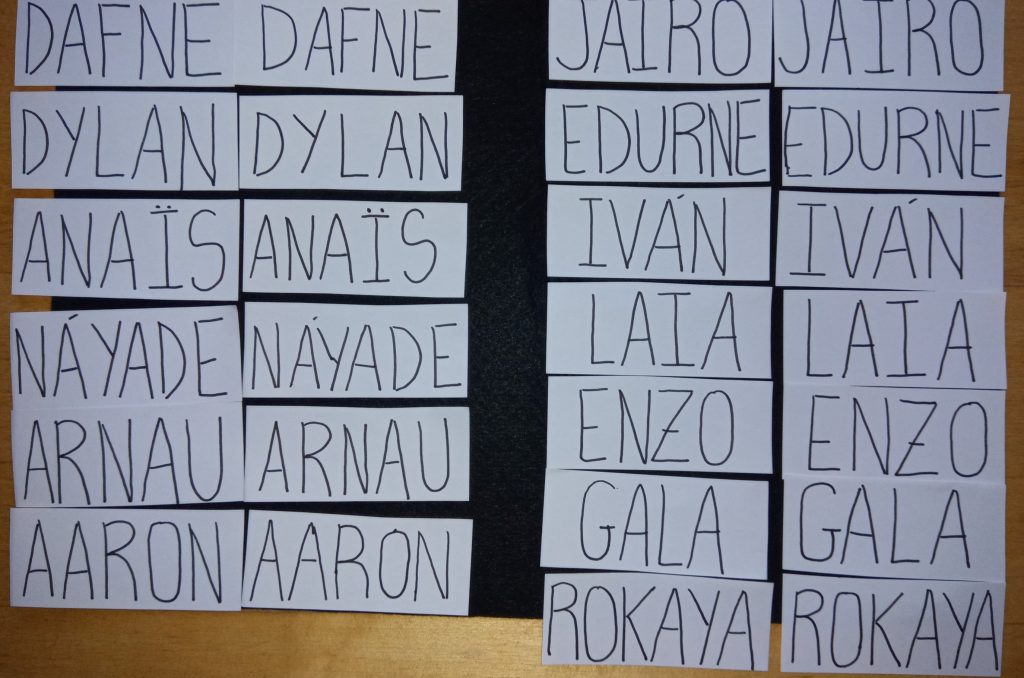 DAFNE DAFNE JAIRO JAIRO
DYLAN DYLAN EDURNE EDURNE
ANAÏS ANAÏS IVÁN IVÁN
NÁYADE NÁYADE LAIA LAIA
ARNAU ARNAU ENZO ENZO
AARON AARON GALA GALA
ROKAYA ROKAYA